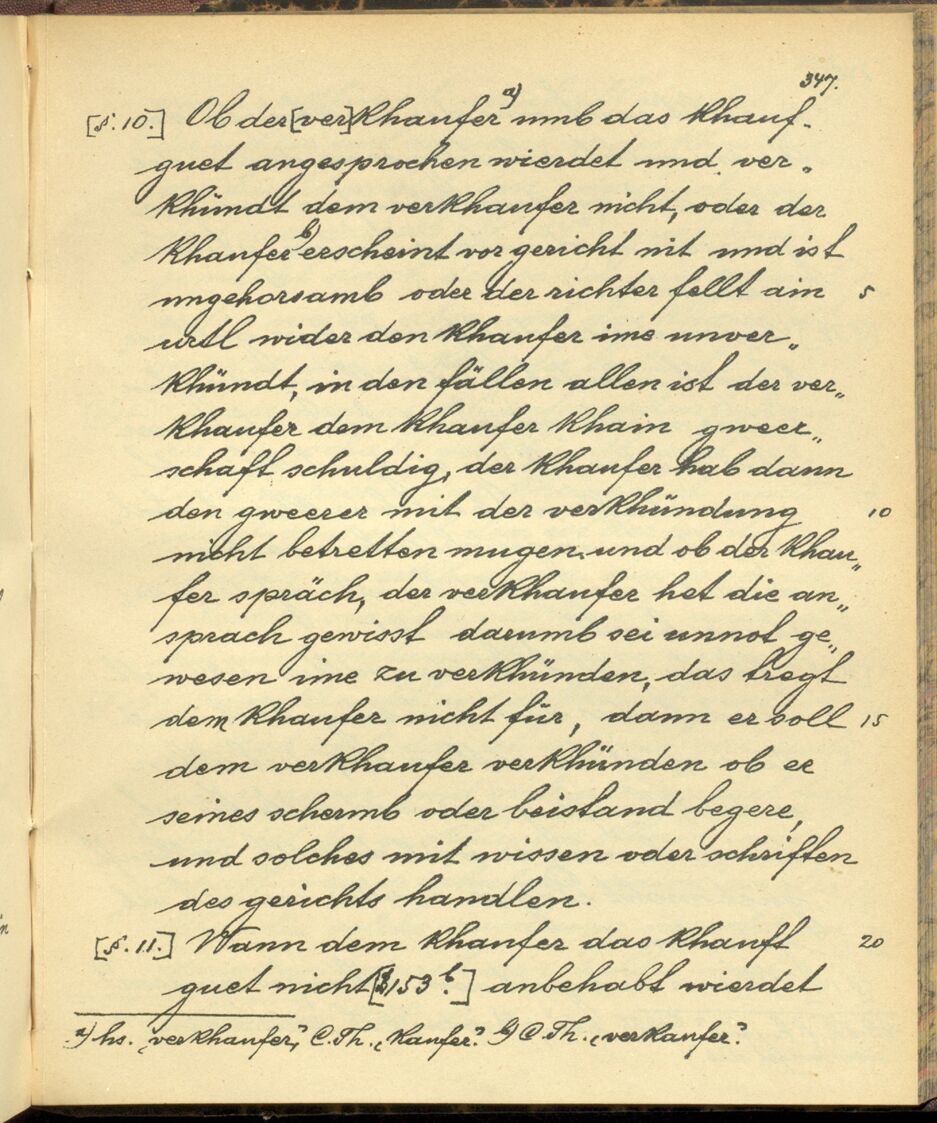 347.
[§. 10.] Ob der [ver]khaufer a) umb das khauf-
guet angesprochen wierdet und ver„
khündt dem verkhaufer nicht, oder der
khaufer b) erscheint vor gericht nit und ist
ungehorsamb oder der richter fellt ain 5
urtl wider den khaufer ime unver„
khündt, in den fällen allen ist der ver„
khaufer dem khaufer khain gweer„
schaft schuldig, der khaufer hab dann
den gweerer mit der verkhündung 10
nicht betretten mugen. und ob der khau„
fer spräch, der verkhaufer het die an„
sprach gewisst darumb sei unnot ge„
wesen ime zu verkhünden, das tregt
dem khaufer nicht für, dann er soll 15
dem verkhaufer verkhünden ob er
seines schermb oder beistand begere,
und solches mit wissen oder schriften
des gerichts handlen.
[§. 11.] Wann dem khaufer das khauft 20
guet nicht [153 b.] anbehabt wierdet
a) hs. „verkhaufer", C. Th. „kaufer". b) C Th. „verkaufer".